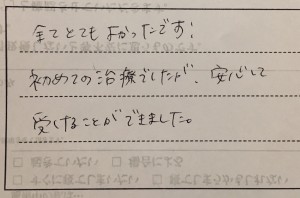 全てとてもよかったです!
初めての治療でしたが、安心して
受けることができました。